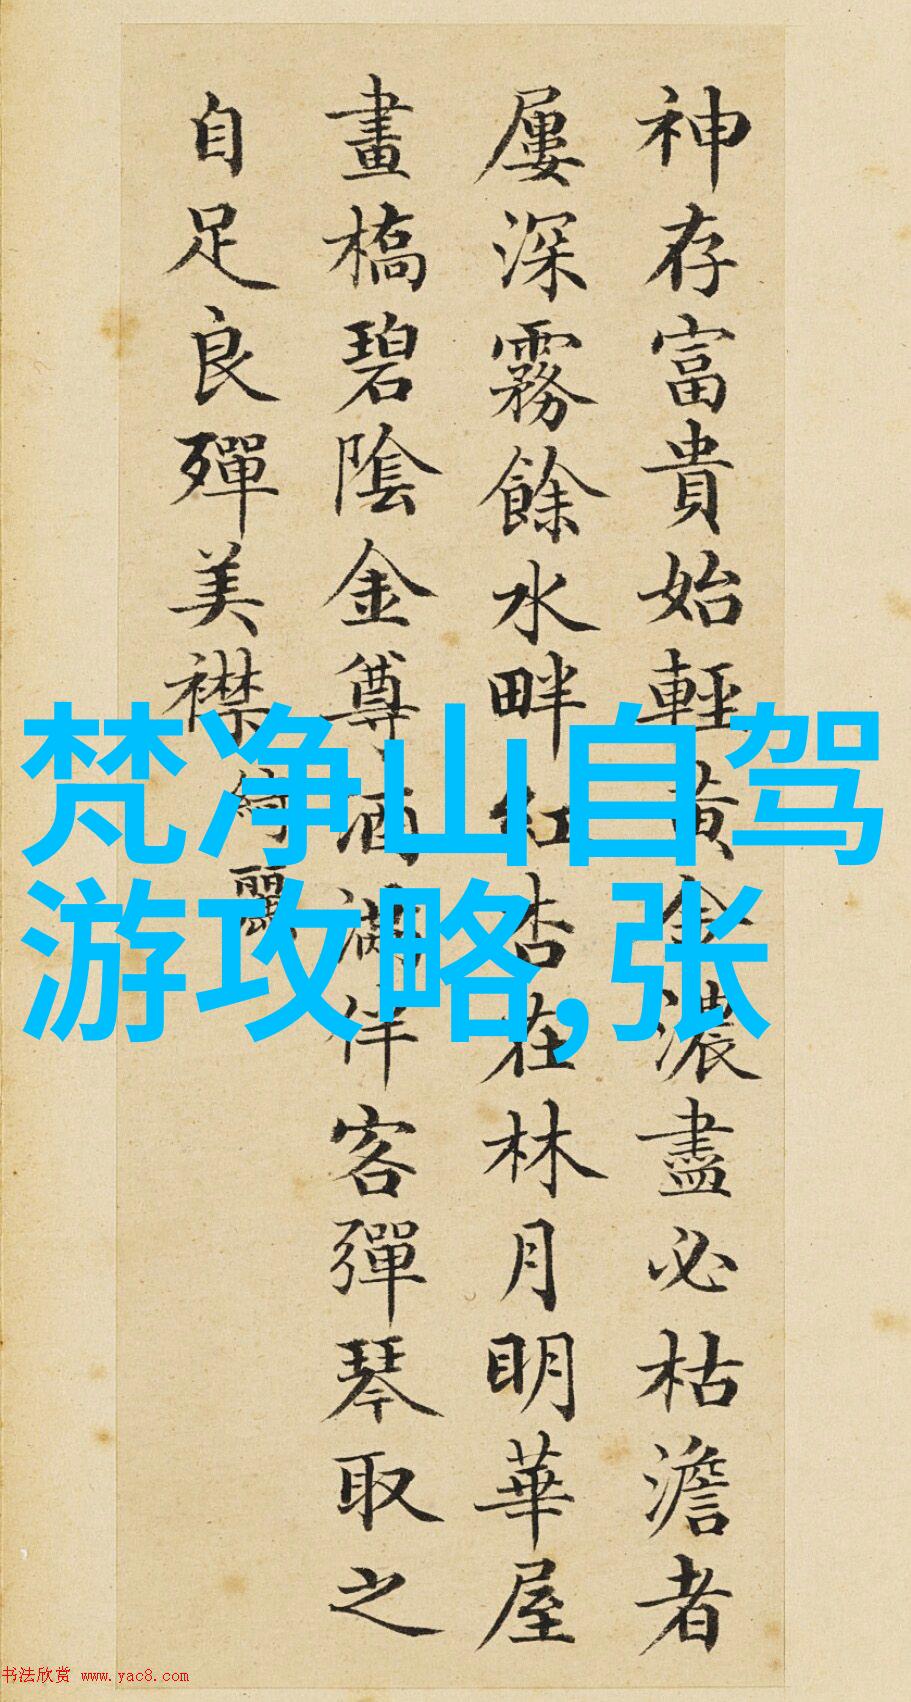 神存富貴始輕黃金濃盡必枯澹者
屢深霧餘水畔紅杏在林月明華屋
畫橋碧陰金尊酒滿伴客彈琴取之
自足良殫美襟
綺麗
梵净山自驾
游攻略,张
书法欣赏 www.yac8.com